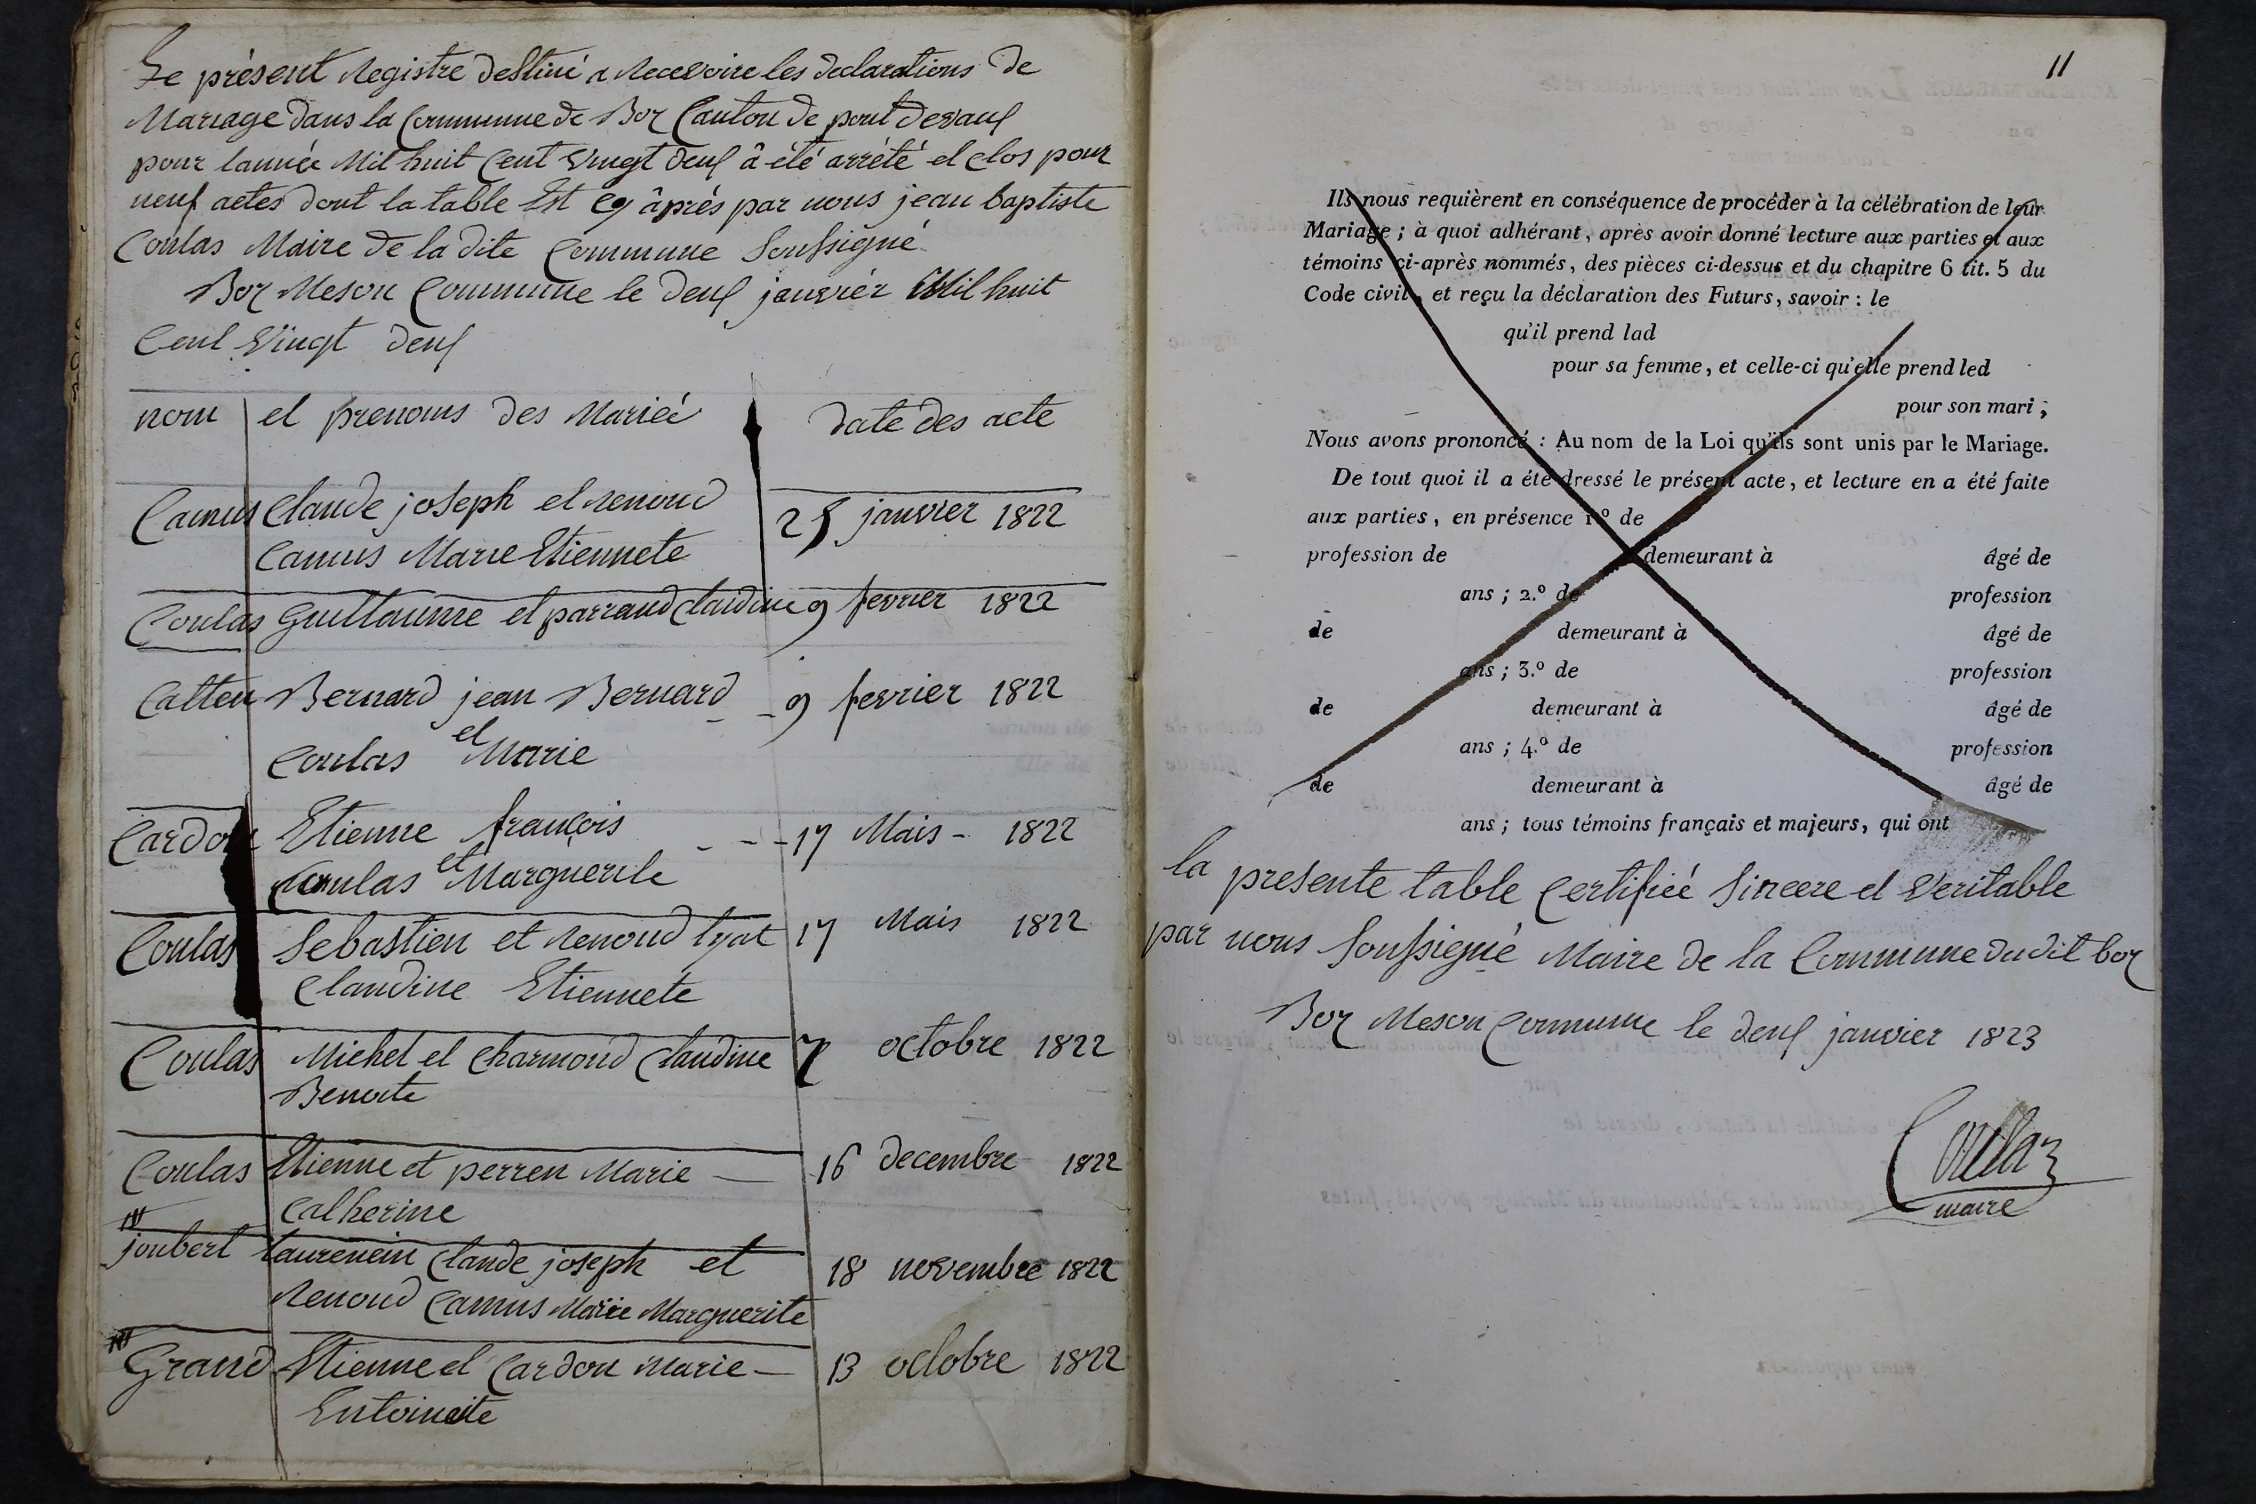 Le présent Registre destiné a Recevoire les declarations de
Mariage dans la Commune de Boz Canton de pont devaux
pour lannée Mil huit Cent Vingt deux â été arrété et clos pour
neuf actes dont la table Est cy âprés par nous jean baptiste
Coulas Maire de la dite Commune Soussigné
Boz Meson Commune le deux janviér Mil huit
Cent Vingt deux
nom et prenoms des Marieé date des acte
Camus Claude joseph et renoud 25 janvier 1822
Camus Marie Etiennete
Coulas Guillaume et parraud Claudine 9 fevrier 1822
Catten Bernard jean Bernard 9 fevrier 1822
et
Coulas Marie
Cardon Etienne françois - - - 17 Mais - 1822
et
Coulas Marguerite
Coulas Sebastien et renoud lyat 17 Mais 1822
Claudine Etiennete
Coulas Michel et Charmond Claudine 7 octobre 1822
Benoite
Coulas Etienne et perren Marie — 16 decembre 1822
Catherine
joubert laurencin Claude joseph et 18 novembre 1822
Renoud Camus Marie Marguerite
Grand Etienne et Cardon Marie — 13 octobre 1822
Entoinette
11
Ils nous requièrent en conséquence de procéder à la célébration de leur
Mariage ; à quoi adhérant, après avoir donné lecture aux parties et aux
témoins ci-après nommés, des pièces ci-dessus et du chapitre 6 tit. 5 du
Code civil, et reçu la déclaration des Futurs, savoir : le
qu'il prend lad
pour sa femme, et celle-ci qu'elle prend led
pour son mari ;
Nous avons prononcé : Au nom de la Loi qu'ils sont unis par le Mariage.
De tout quoi il a été dressé le présent acte, et lecture en a été faite
aux parties, en présence 1.º de
profession de demeurant à âgé de
ans ; 2.º de profession
de demeurant à âgé de
ans ; 3.º de profession
de demeurant à âgé de
ans ; 4.º de profession
de demeurant à âgé de
ans ; tous témoins français et majeurs, qui ont
la presente table Certifieé Sincere et Veritable
par nous Soussigné Maire de la Commune dudit boz
Boz Meson Commune le deux janvier 1823
Coulas
maire